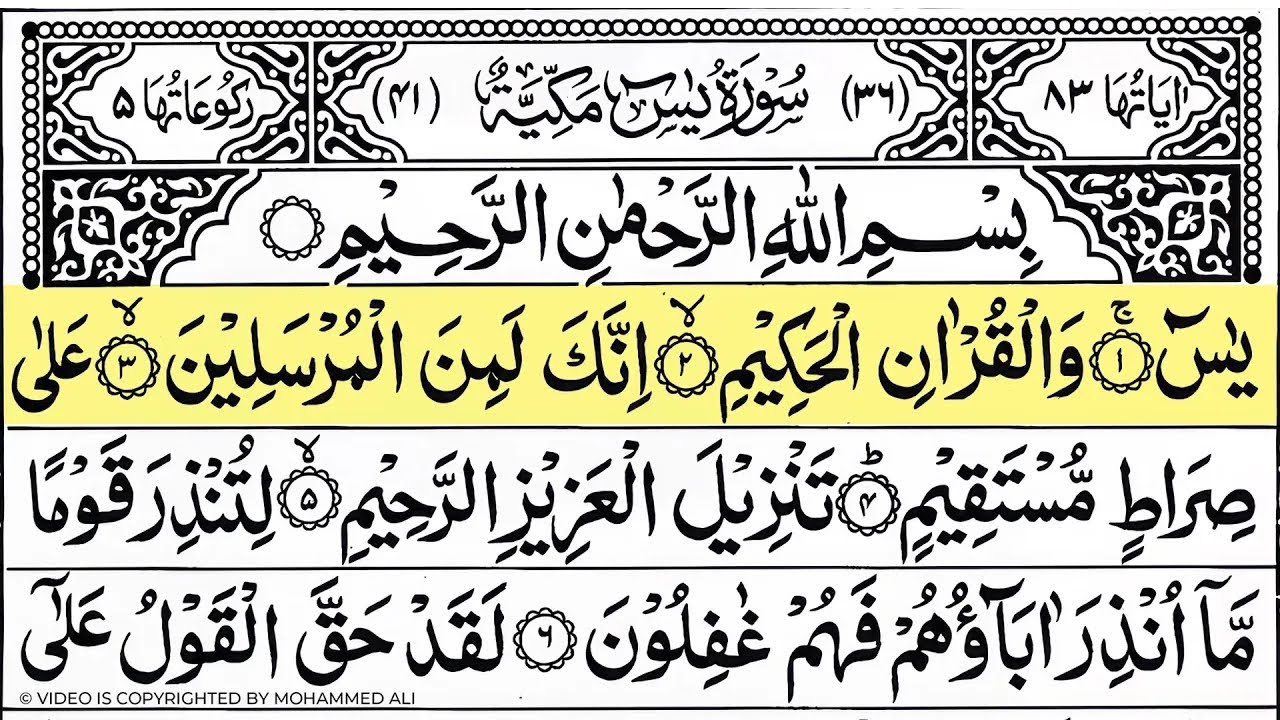 اٰيَاتُهَا ٨٣ (٣٦) سُوْرَةُ يٰسٓ مَكِّيَّةٌ (٤١) رُكُوْعَاتُهَا ٥
بِسْمِ اللّٰهِ الرَّحْمٰنِ الرَّحِيْمِ
يٰسٓ ۚ ﴿١﴾ وَالْقُرْاٰنِ الْحَكِيْمِ ۙ ﴿٢﴾ اِنَّكَ لَمِنَ الْمُرْسَلِيْنَ ۙ ﴿٣﴾ عَلٰى
صِرَاطٍ مُّسْتَقِيْمٍ ؕ ﴿٤﴾ تَنْزِيْلَ الْعَزِيْزِ الرَّحِيْمِ ۙ ﴿٥﴾ لِتُنْذِرَ قَوْمًا
مَّآ اُنْذِرَ اٰبَآؤُهُمْ فَهُمْ غٰفِلُوْنَ ﴿٦﴾ لَقَدْ حَقَّ الْقَوْلُ عَلٰٓى
© VIDEO IS COPYRIGHTED BY MOHAMMED ALI